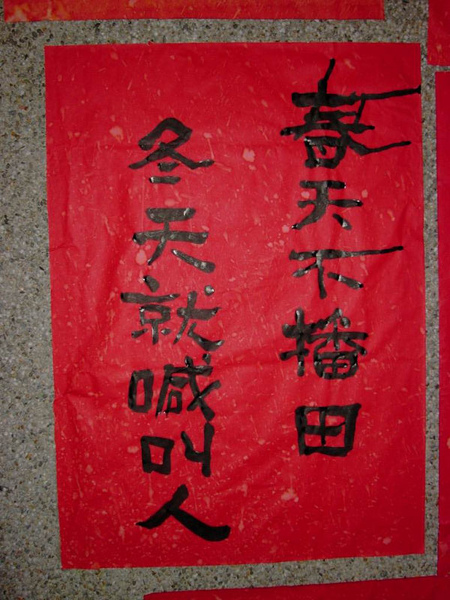 春天不播田
冬天就喊叫人